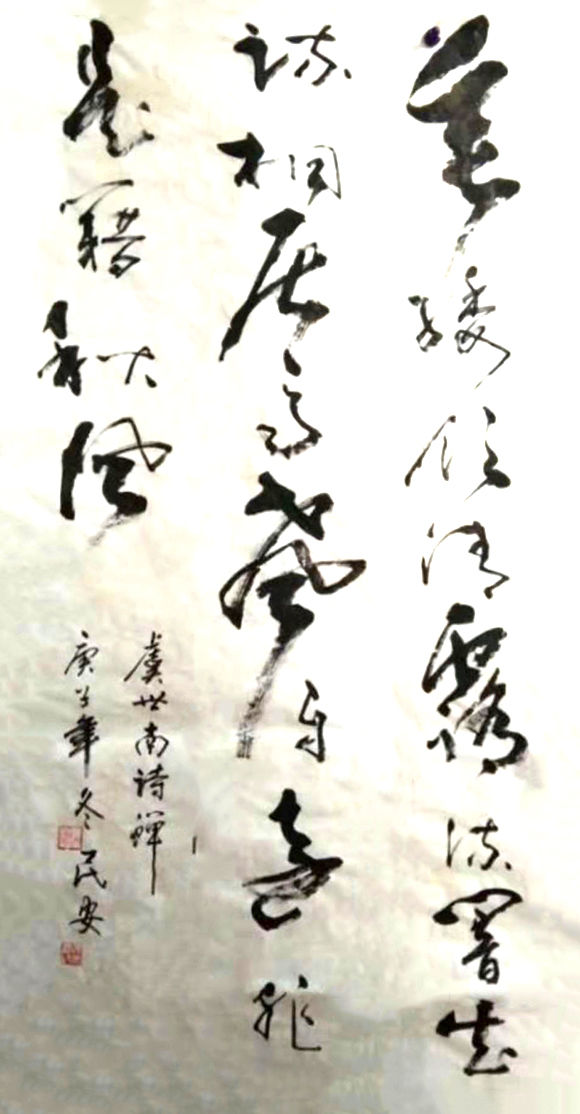 垂緌飲清露流響出
疏桐居高聲自遠非
是藉秋風
虞世南詩蟬
庚子年冬民安